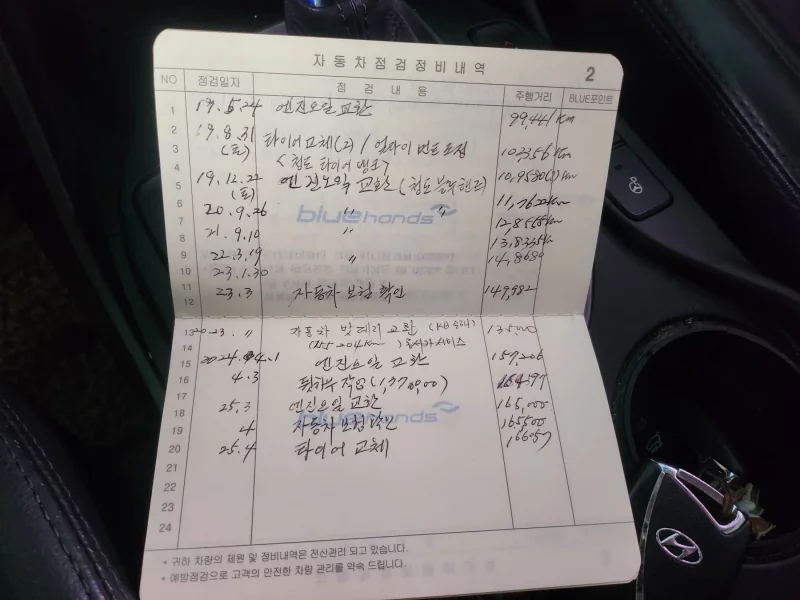 자동차점검정비내역 2
NO 점검일자 점검내용 주행거리 BLUE포인트
1 17.5.24 엔진오일 교환 99,441 Km
2 19.8.31 타이어교체(2) / 얼라이먼트 조정 102356 Km
3 (토) <청도 타이어뱅크>
4 19.12.22 엔진오일 교환 (청도블루핸즈) Km
5 (토)
6 20.9.26 〃 〃 11,7622km
7 21.9.10 〃 12,8565km
8 22.3.19 〃 13,8335km
9 23.1.30 14,8680
10
11 23.3 자동차 보험 확인 149,982
12
13 2023. 〃 자동차 밧데리 교환 (KB손해)
14 (155204Km)
15 2024.4.1 엔진오일 교환 157,206
16 4.3 (1,370,000)
17 25.3 엔진오일 교환 165,000
18 4 자동차보험 165500
19 25.4 타이어 교체 166057
20
21
22
23
24
bluehands
bluehands
* 귀하 차량의 제원 및 정비내역은 전산관리 되고 있습니다.
* 예방점검으로 고객의 안전한 차량 관리를 약속 드립니다.